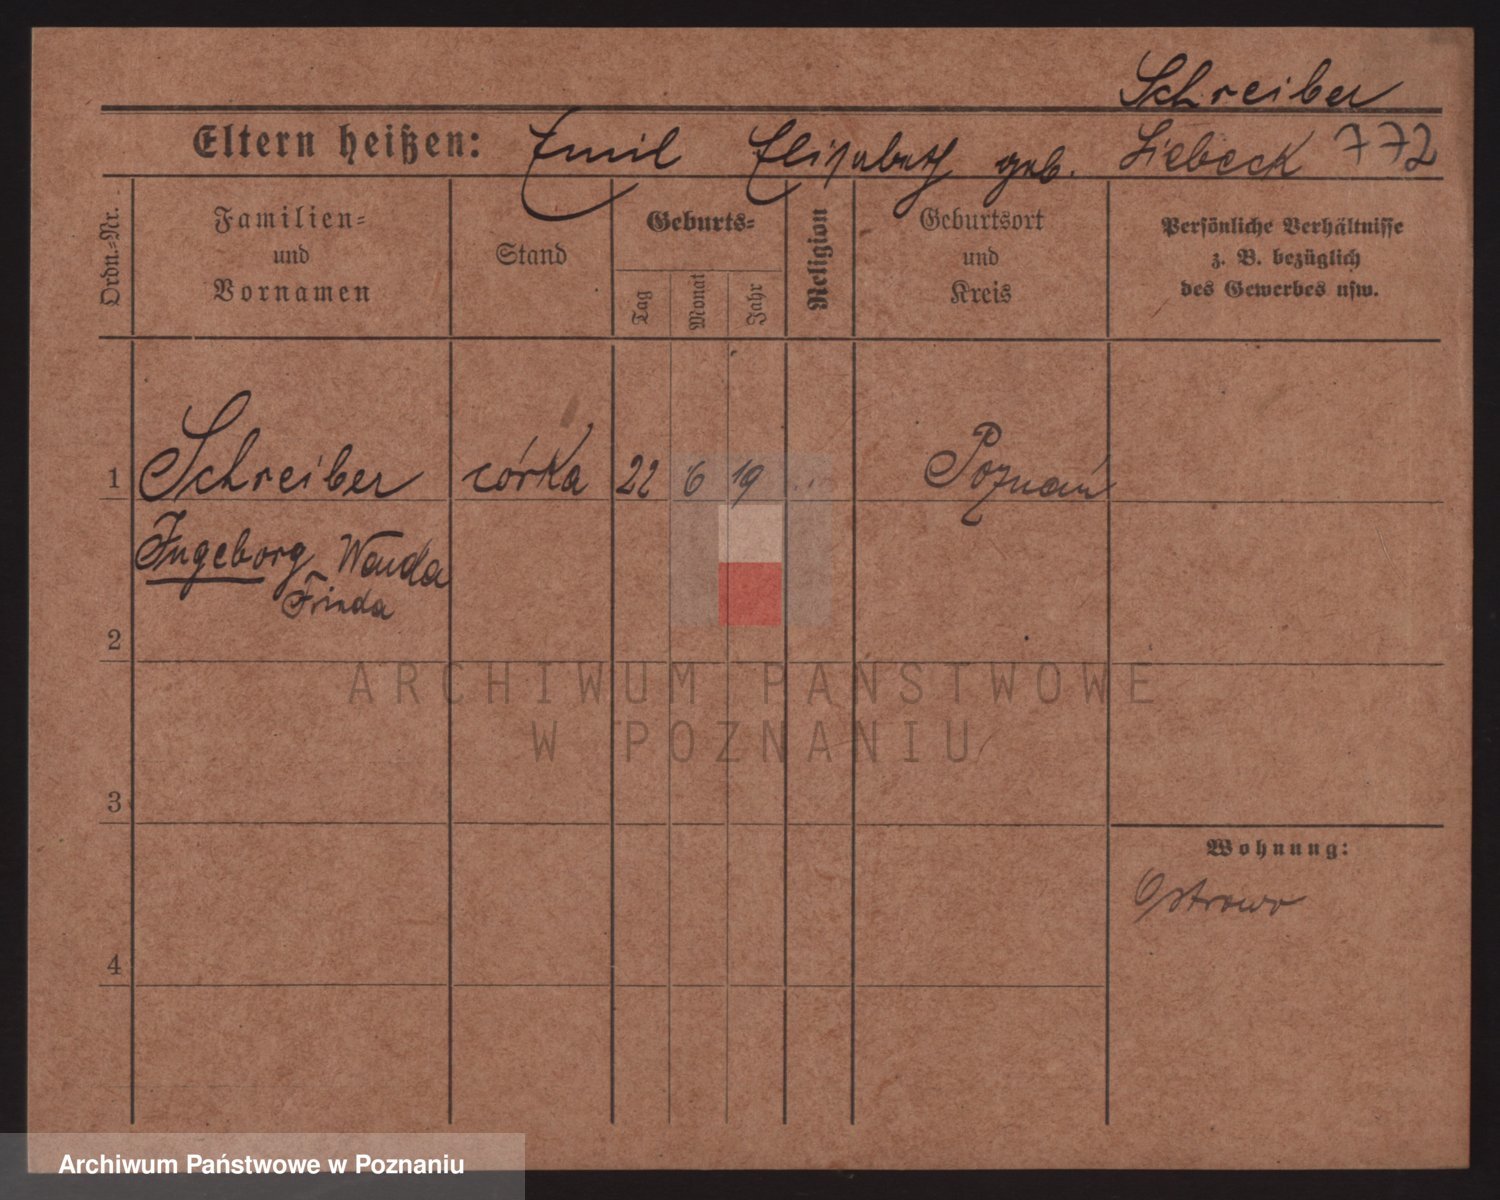 Schreiber
Eltern heißen: Emil Elisabeth geb. Liebeck 772
Ordn.-Nr.
Familien-
und
Vornamen
Stand
Geburts-
Tag
Monat
Jahr
Religion
Geburtsort
und
Kreis
Persönliche Verhältnisse
z. B. bezüglich
des Gewerbes usw.
1 Schreiber córka 22 6 19 Poznań
Ingeborg Wanda
Frieda
2
ARCHIWUM PAŃSTWOWE
W POZNANIU
3
Wohnung:
Ostrowo
4
Archiwum Państwowe w Poznaniu